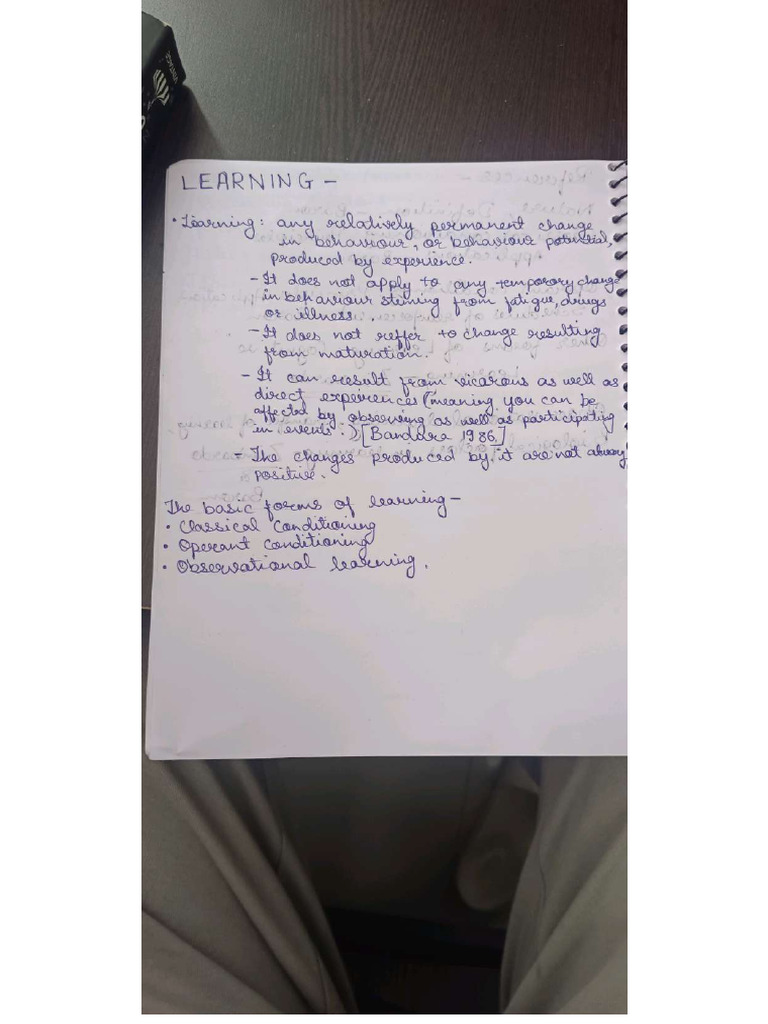 LEARNING -
• Learning: any relatively permanent change
in behaviour, or behaviour potential,
produced by experience.
- It does not apply to any temporary change
in behaviour steming from fatigue, drugs
or illness.
- It does not reffer to change resulting
from maturation.
- It can result from vicarous as well as
direct expeirences (meaning you can be
affected by observing as well as participating
in events.) [Bandura 1986]
- The changes produced by it are not always
positive.
The basic forms of learning -
• Classical Conditioning
• Operant Conditioning
• Observational learning.
VINTAGE